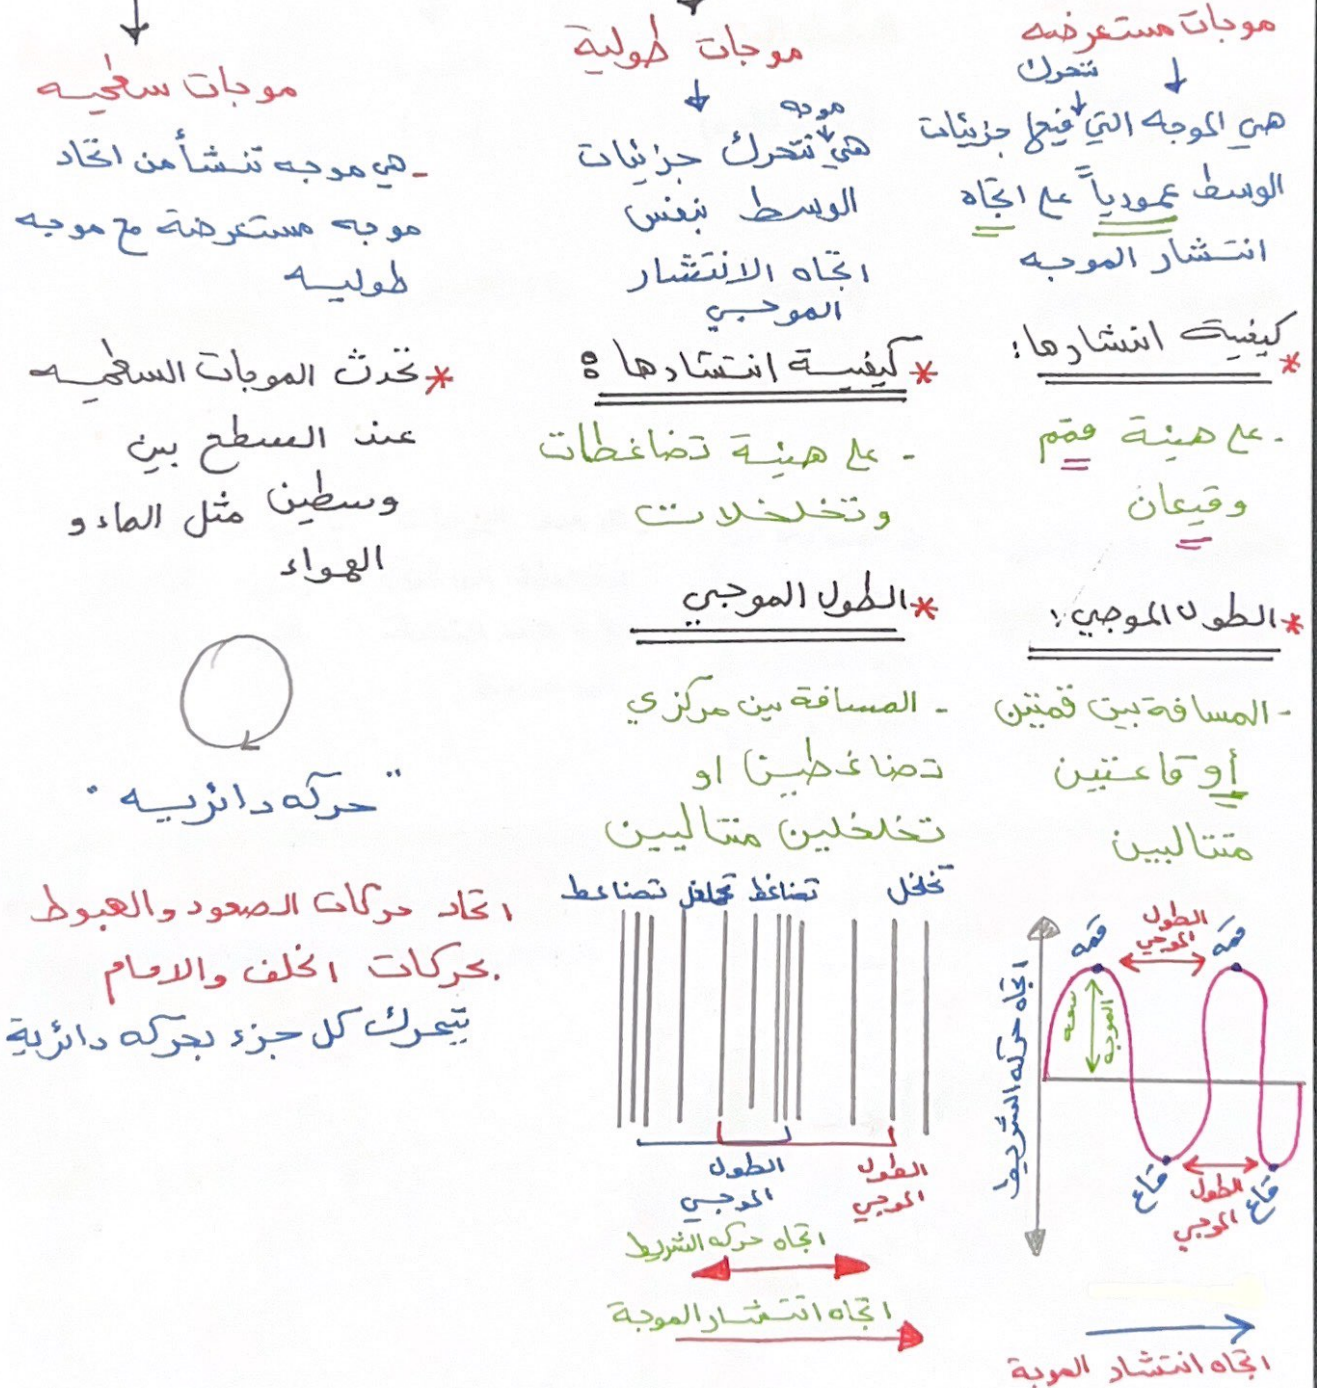 موجات مستعرضه
تتحرك
هي الموجه التي فيها جزيئات
الوسط عمودياً على اتجاه
انتشار الموجه
* كيفية انتشارها:
- على هيئة قمم
وقيعان
* الطول الموجي:
- المسافة بين قمتين
أو قاعتين
متتاليين
قمه
الطول
الموجي
قمه
سعه
الموجه
اتجاه حركه الشريط
قاع
الطول
الموجي
قاع
اتجاه انتشار الموجة
موجات طولية
موجه
هي تتحرك جزئيات
الوسط بنفس
اتجاه الانتشار
الموجي
* كيفية انتشارها :
- على هيئة تضاغطات
وتخلخلات
* الطول الموجي
- المسافة بين مركزي
تضاغطين او
تخلخلين متتاليين
تخلخل تضاغط تخلخل تضاغط
الطول
الموجي
الطول
الموجي
اتجاه حركه الشريط
اتجاه انتشار الموجة
موجات سطحيه
- هي موجه تنشأ من اتحاد
موجه مستعرضة مع موجه
طوليه
* تحدث الموجات السطحيه
عند السطح بين
وسطين مثل الماء و
الهواء
"حركه دائريه"
اتحاد حركات الصعود والهبوط
بحركات الخلف والامام.
يتحرك كل جزء بحركه دائرية